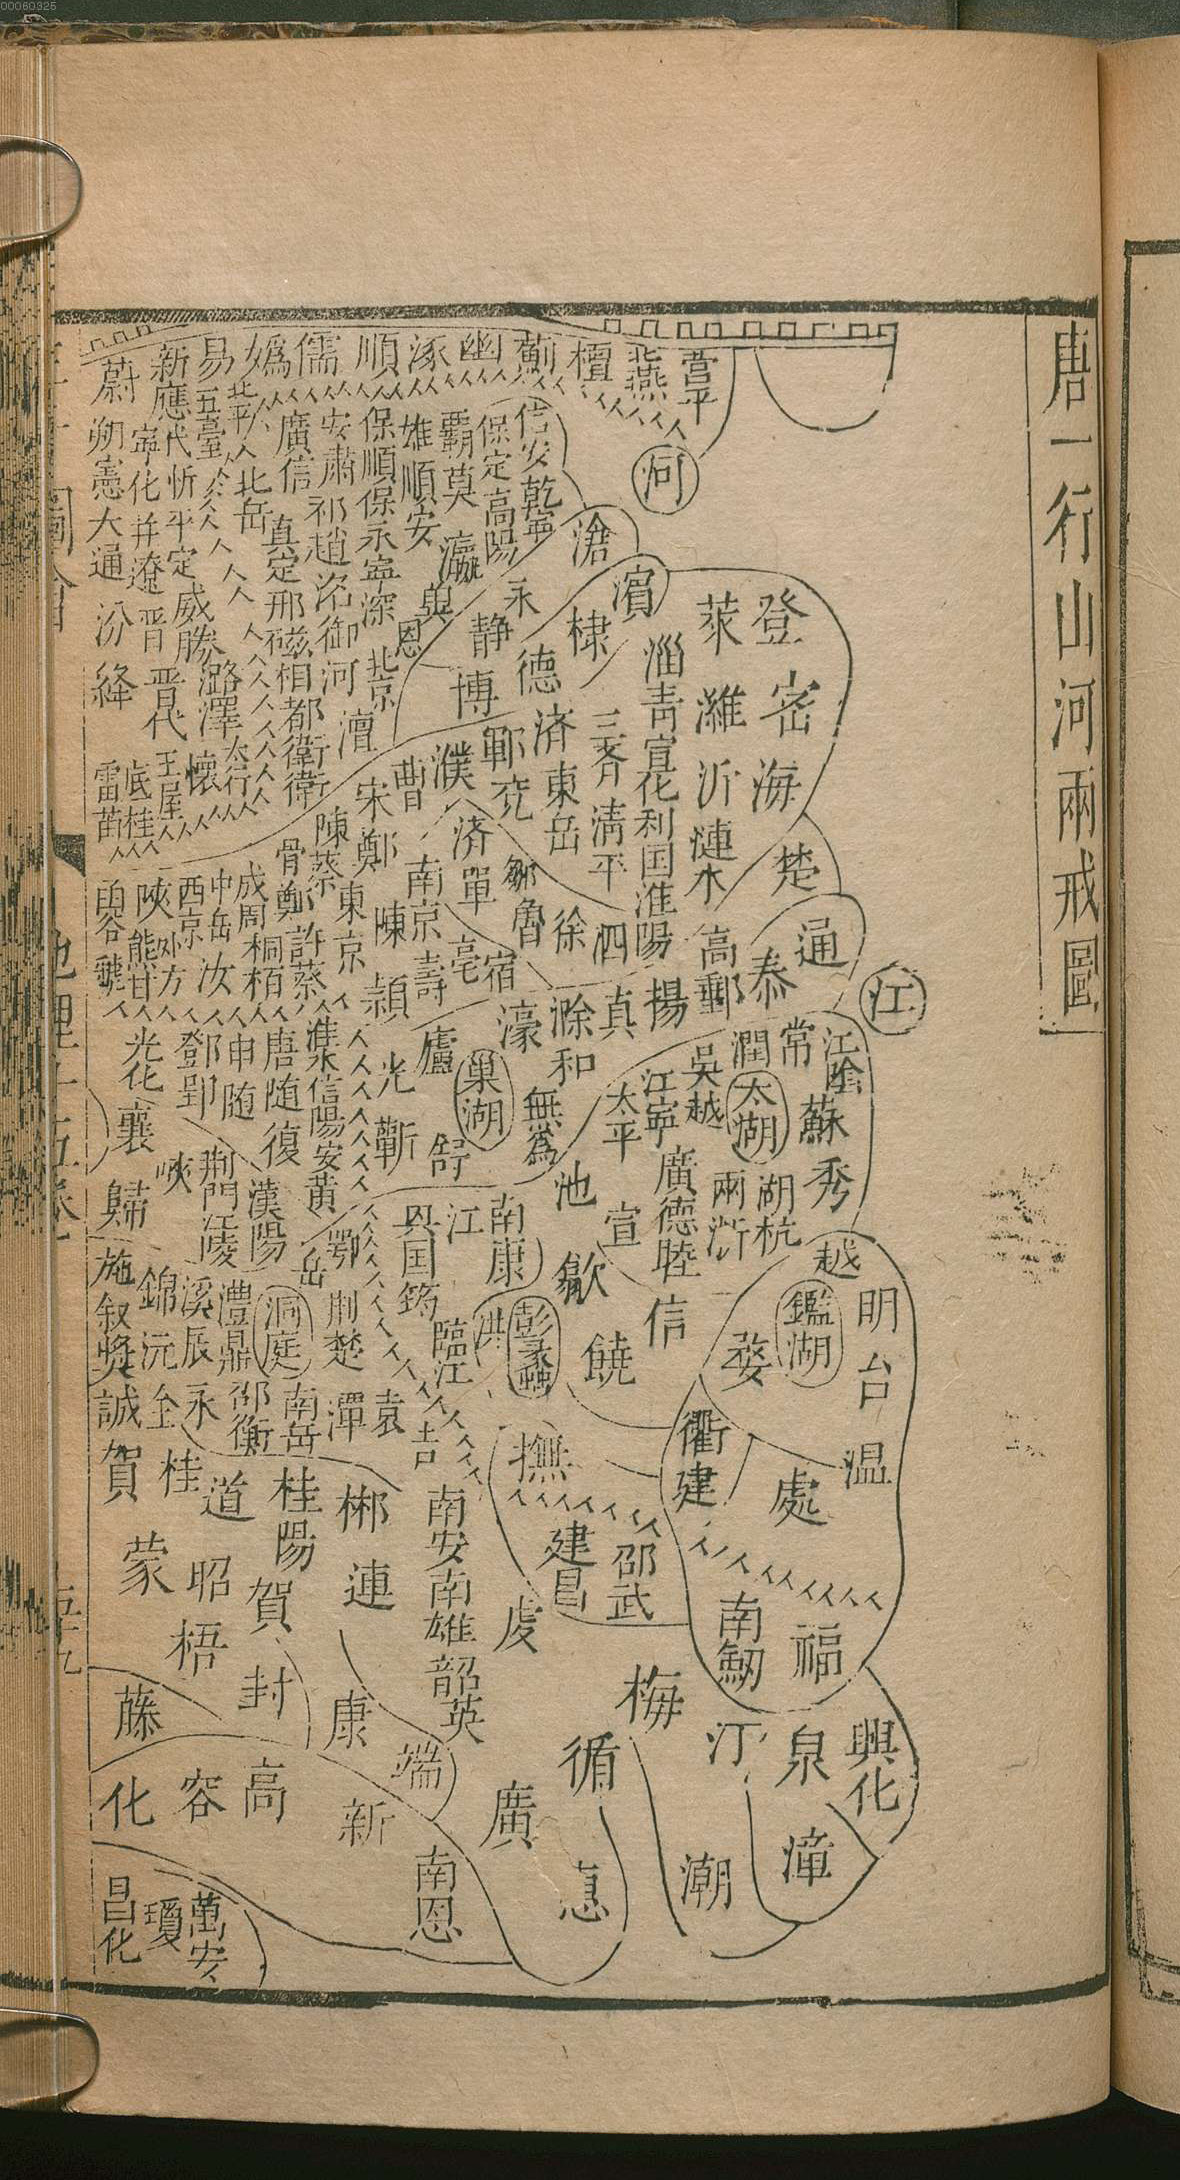 00060325
唐一行山河兩戒圖
營平
燕
檀
薊
幽
涿
順
儒
媯
北平
易
五臺
新
應
蔚
河
信安
乾寧
保定
高陽
霸
莫
瀛
雄
順安
保順
保
永寧
深
安肅
祁
趙
洺
御河
廣信
真定
邢
磁
相
都
衛
衛
北岳
代
忻
平定
威勝
潞
澤
太行
寧化
并
遼
晋
晋代
王屋
懷
朔
憲
大通
汾
絳
底柱
雷首
滄
濱
棣
永
靜
德
博
恩
北京
澶
登
萊
密
濰
淄
青
宣化
利国
淮陽
海
沂
漣水
三齊
清平
済
東岳
鄆
兖
濮
曹
宋
鄭
済
單
鄒
魯
徐
泗
南京
陳
東京
陳
蔡
滑
鄭
許
蔡
成周
桐栢
中岳
汝
西京
外方
陜
熊
甘
亳
宿
壽
潁
楚
通
泰
高郵
江
揚
真
滁
和
濠
無為
廬
巢湖
光
蘄
舒
淮
信陽
安
黃
唐
随
復
申
随
鄧
郢
光化
襄
峽
荆門
江陵
漢陽
歸
江陰
常
潤
太湖
吳越
江寧
太平
蘇
秀
湖
杭
兩浙
廣德
睦
宣
池
歙
信
饒
越
鑑湖
明
台
温
婺
處
衢
建
南康
江
興国
筠
臨江
洪
彭蠡
鄂
岳
荆楚
潭
袁
吉
洞庭
南岳
澧
鼎
邵
衡
溪
辰
永
錦
沅
全
施
叙
獎
誠
撫
建昌
邵武
南劒
福
興化
泉
漳
汀
潮
梅
循
惠
虔
廣
南安
南雄
韶
英
端
南恩
郴
連
康
新
桂陽
賀
封
高
道
昭
梧
容
桂
賀
蒙
藤
化
萬安
瓊
昌化